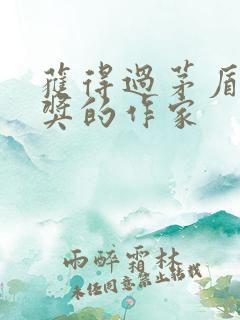 獲得過茅盾
獎的作家
雨醉霜林
未经同意禁止转载